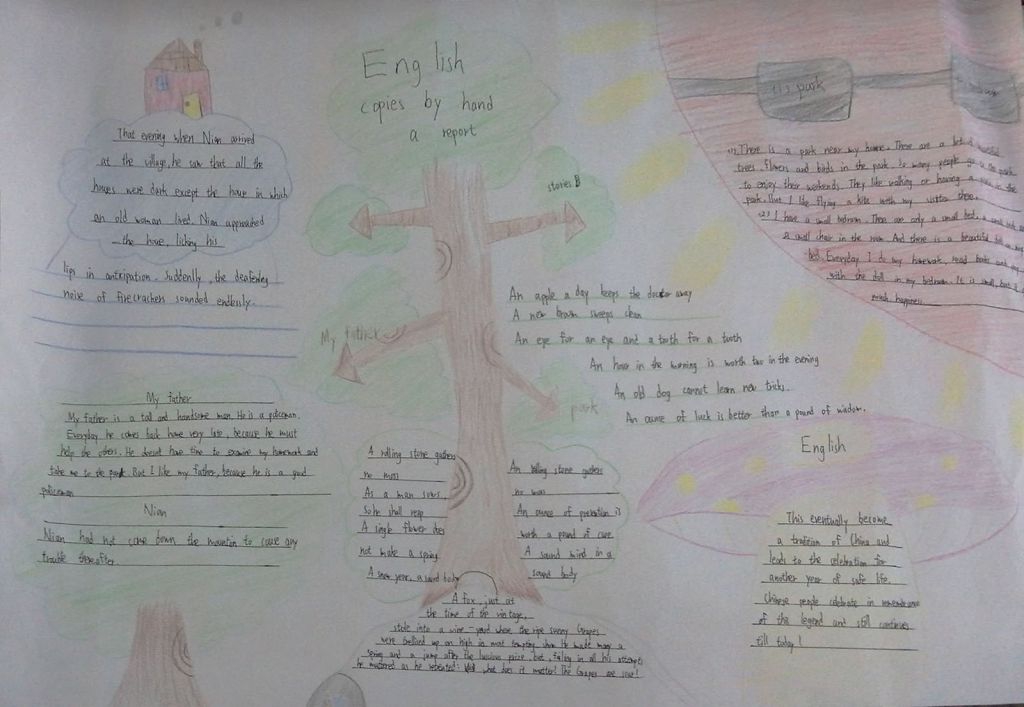 English
copies by hand
a report
That evening when Nian arrived
at the village, he saw that all the
houses were dark except the house in which
an old woman lived. Nian approached
the house, licking his
lips in anticipation. Suddenlly, the deafening
noise of firecrackers sounded endlessly.
stories B
My
park
My father
My father is a tall and handsome man. He is a policeman.
Everyday he comes back home very late, because he must
help the others. He doesn't have time to examine my homework and
take me to the park. But I like my father, because he is a good
policeman
Nian
Nian had not come down the mountin to cause any
trouble thereafter.
An apple a day keeps the doctor away
A new broom sweeps clean
An eye for an eye and a tooth for a tooth
An hour in the morning is worth two in the evening
An old dog cannot learn new tricks.
An ounce of luck is better than a pound of wisdom.
A rolling stone gathers
no moss
As a man sows,
so he shall reap
A single flower does
not make a spring
A snow year, a sound body
An rolling stone gathers
no moss
An ounce of prevention is
worth a pound of cure
A sound mind in a
sound body
A fox, just at
the time of the vintage,
stole into a wine-yard where the ripe sunny Grapes
were trellised up on high in most tempting show. He made many a
spring and a jump after the luscious prize, but, failing in all his attempts
he muttered as he retreated: Well what does it matter! The Grapes are sour!
park
(1) There is a park near my home. There are a lot of beautiful
trees, flowers and birds in the park. So many people go to the park
to enjoy their weekends. They like walking or having a in the
park. But I like flying a kite with my sister there.
(2) I have a small bedroom. There are only a small bed, a
a small chair in the room. And there is a beautiful
bed. Everyday I do my homework, read books and
with the doll in my bedroom. It is small, but I
much happness.
English
This eventually become
a tradition of China and
leads to the celebration for
another year of safe life.
Chinese people celebrate in remembrance
of the legend and still continues
till today!